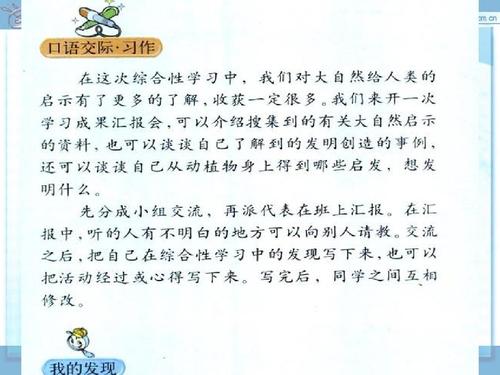 om.cn
口语交际·习作
在这次综合性学习中，我们对大自然给人类的
启示有了更多的了解，收获一定很多。我们来开一次
学习成果汇报会，可以介绍搜集到的有关大自然启示
的资料，也可以谈谈自己了解到的发明创造的事例，
还可以谈谈自己从动植物身上得到哪些启发，想发
明什么。
先分成小组交流，再派代表在班上汇报。在汇
报中，听的人有不明白的地方可以向别人请教。交流
之后，把自己在综合性学习中的发现写下来，也可以
把活动经过或心得写下来。写完后，同学之间互相
修改。
我的发现